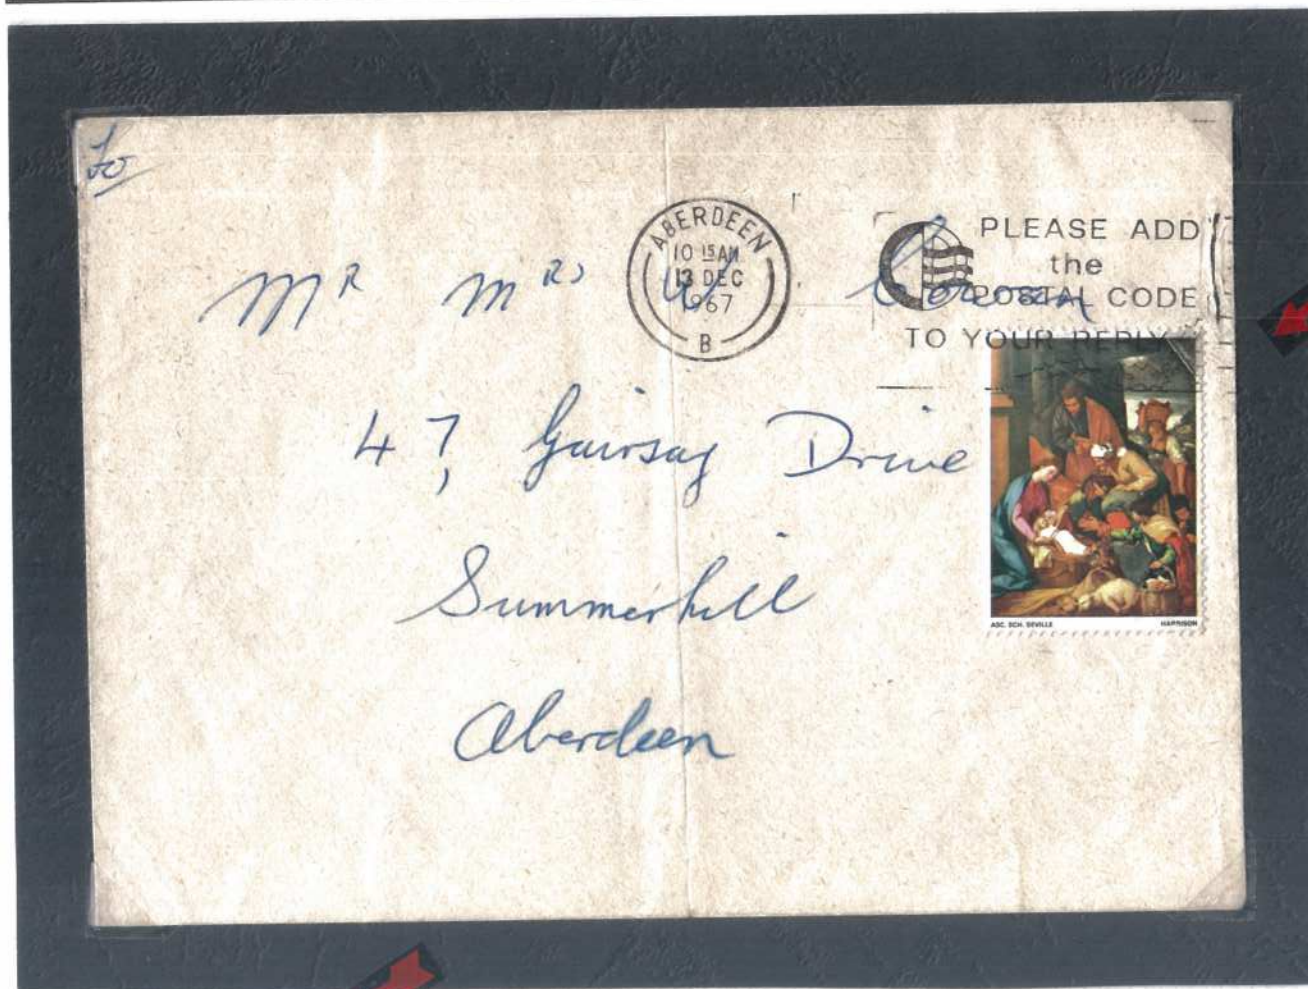 To
ABERDEEN
10 15 AM
13 DEC
1967
B
PLEASE ADD
the
POSTAL CODE
TO YOUR REPLY
Mr Mrs W
47, Gairsay Drive
Summerhill
Aberdeen
ASC. SCH. SEVILLE HARRISON